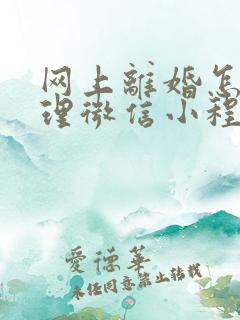 网上離婚怎
理微信小程
愛德華
未经同意禁止转载